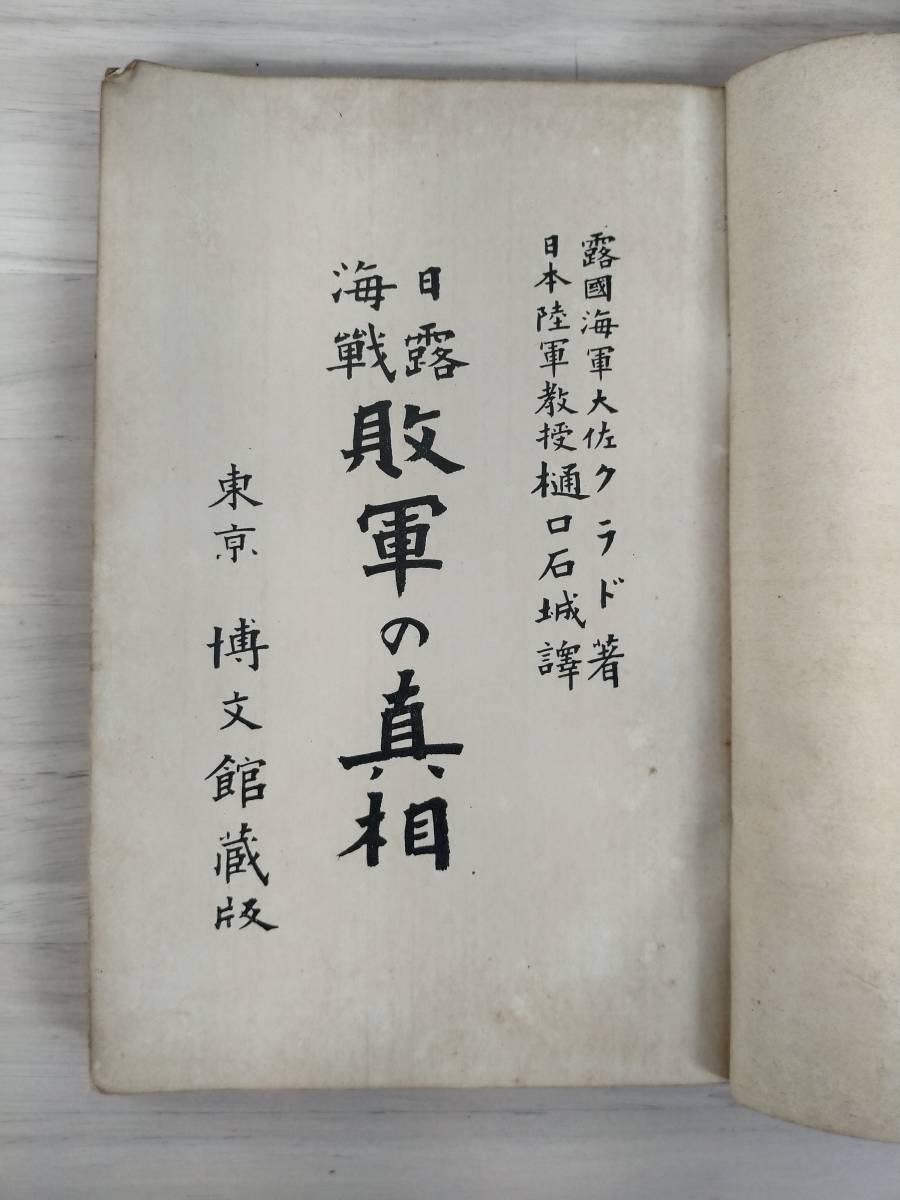 露國海軍大佐クラド著
日本陸軍教授樋口石城譯
日露
海戰
敗軍の真相
東京 博文館蔵版